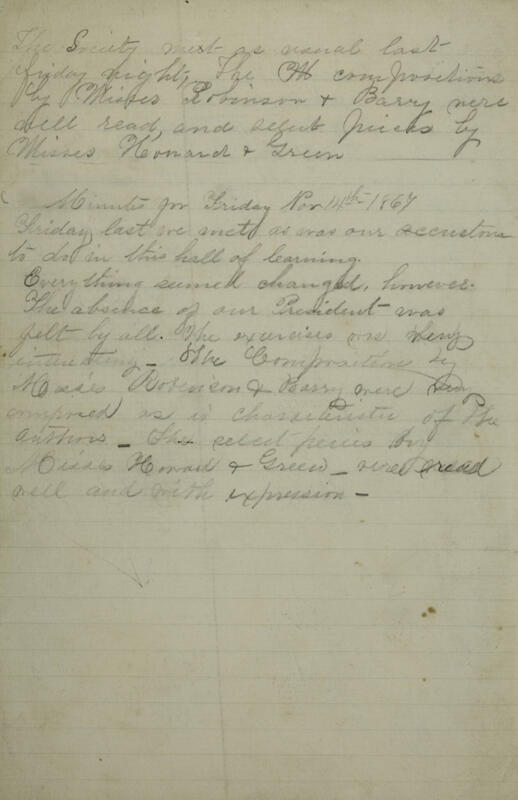 The Society met as usual last
friday night, The compositions
by Misses Robinson & Barry were
well read, and select pieces by
Misses Howard & Green
Minutes for Friday Nov 14th 1867
Friday last we met as was our accustom
to do in this hall of learning.
Everything seemed changed, however.
The absence of our President was
felt by all. The exercises were very
interesting - The Composition by
Misses Robinson & Barry were
composed as is characteristic of the
authors - The select pieces by
Misses Howard & Green - were read
well and with expression -